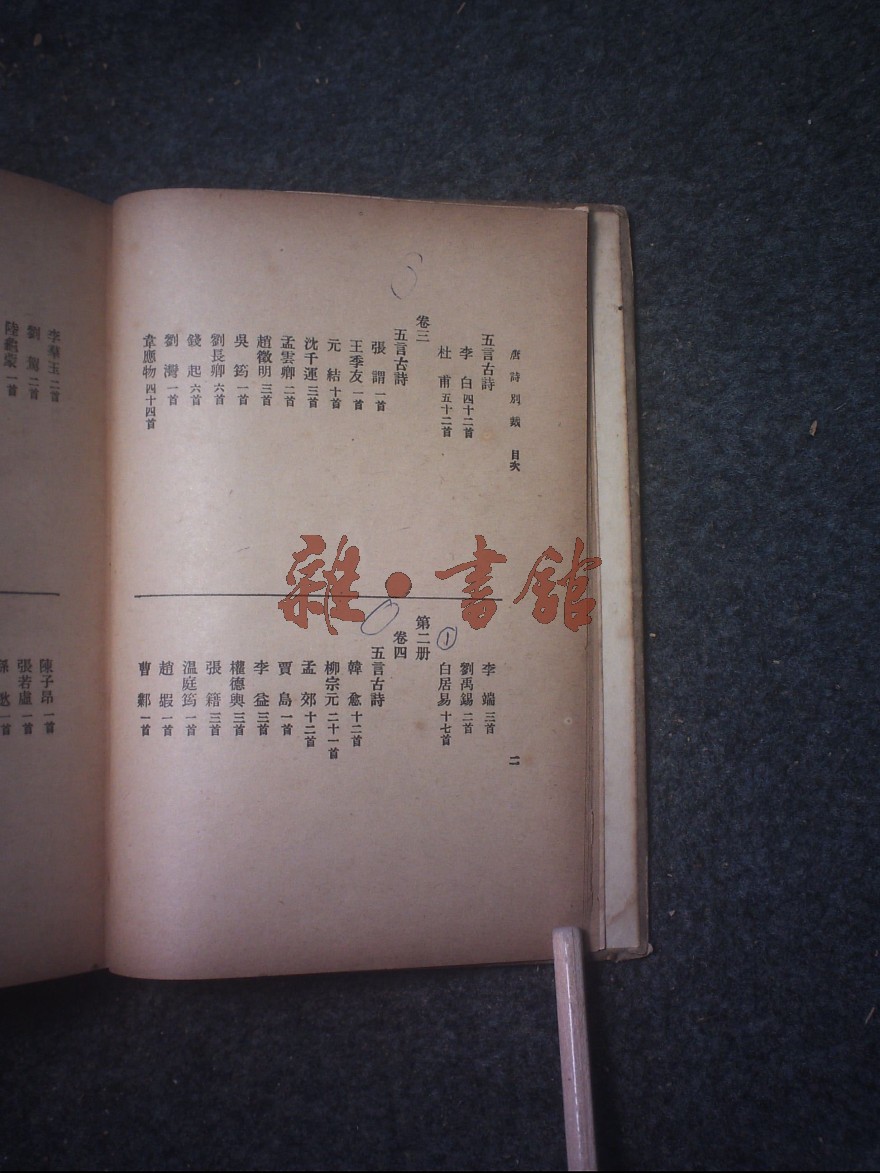 唐詩別裁 目次
五言古詩
李白 四十二首
杜甫 五十二首
卷三
五言古詩
張謂 一首
王季友 一首
元結 十首
沈千運 三首
孟雲卿 二首
趙徵明 三首
吳筠 一首
劉長卿 六首
錢起 六首
劉灣 一首
韋應物 四十四首
二
李端 三首
劉禹錫 二首
白居易 十七首
1
第二册
卷四
五言古詩
韓愈 十二首
柳宗元 二十一首
孟郊 十二首
賈島 一首
李益 三首
權德輿 三首
張籍 三首
温庭筠 一首
趙嘏 一首
曹鄴 一首
李羣玉 二首
劉駕 二首
陸龜蒙 一首
陳子昂 一首
張若虛 一首
一首
雜·書館